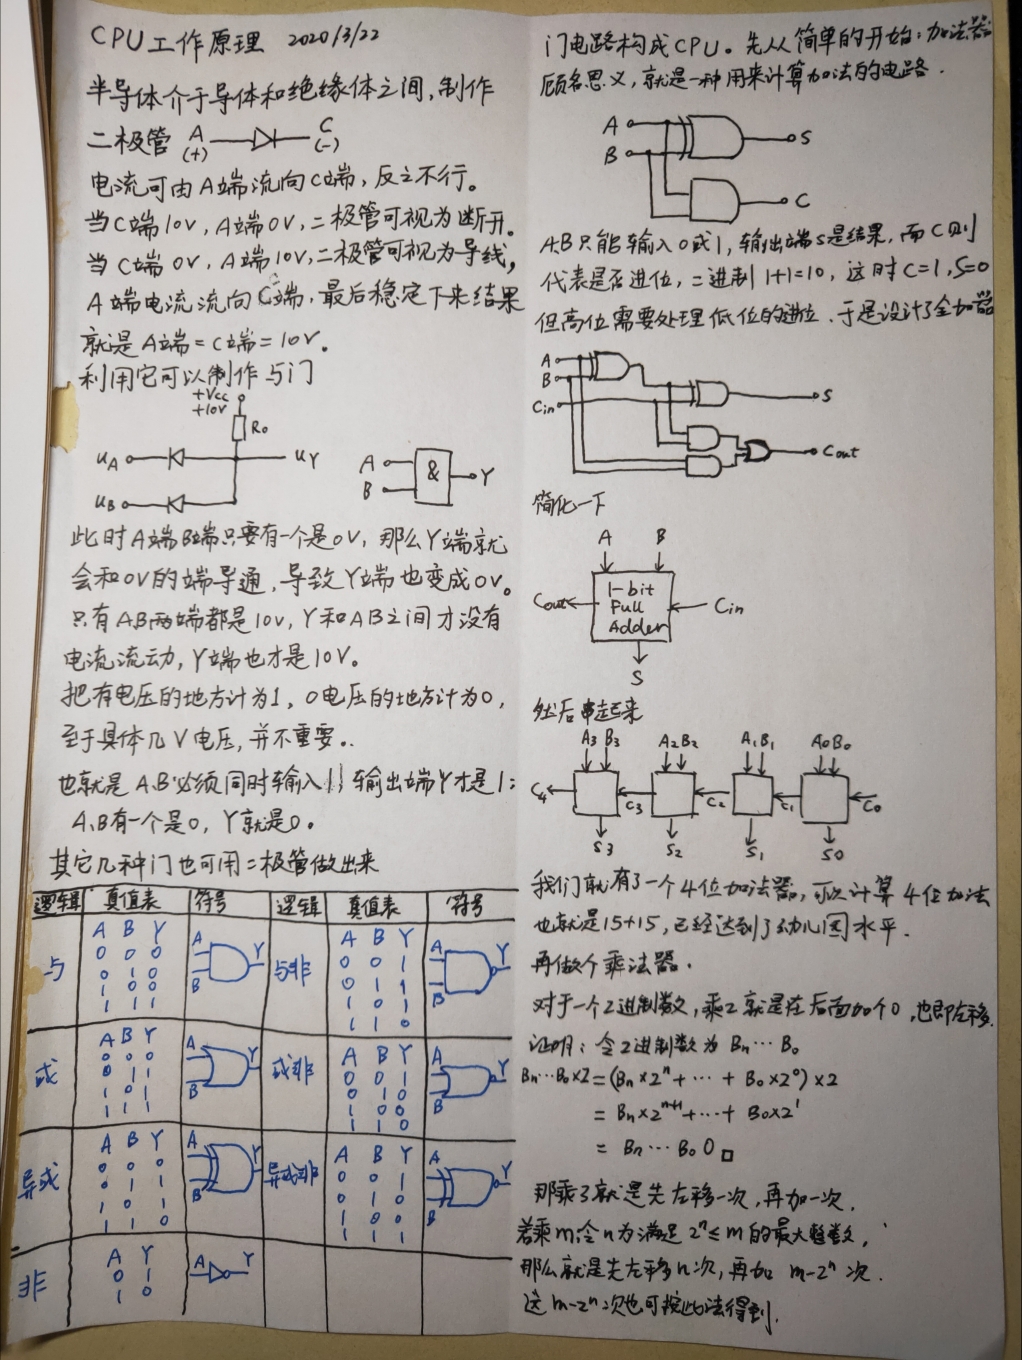 CPU工作原理 2020/3/22
半导体介于导体和绝缘体之间,制作
二极管 A (+) C (-)
电流可由A端流向C端,反之不行。
当C端10V,A端0V,二极管可视为断开。
当C端0V,A端10V,二极管可视为导线,
A端电流流向C端,最后稳定下来结果
就是A端=C端=10V。
利用它可以制作与门
+Vcc
+10V
R0
uA uY
uB
A & Y
B
此时A端B端只要有一个是0V,那么Y端就
会和0V的端导通,导致Y端也变成0V。
只有AB两端都是10V,Y和AB之间才没有
电流流动,Y端也才是10V。
把有电压的地方计为1,0电压的地方计为0,
至于具体几V电压,并不重要。
也就是A.B必须同时输入1,输出端Y才是1;
A、B有一个是0,Y就是0。
其它几种门也可用二极管做出来
逻辑 真值表 符号 逻辑 真值表 符号
与
A B Y
0 0 0
0 1 0
1 0 0
1 1 1
A B Y
与非
A B Y
0 0 1
0 1 1
1 0 1
1 1 0
A B Y
或
A B Y
0 0 0
0 1 1
1 0 1
1 1 1
A B Y
或非
A B Y
0 0 1
0 1 0
1 0 0
1 1 0
A B Y
异或
A B Y
0 0 0
0 1 1
1 0 1
1 1 0
A B Y
异或非
A B Y
0 0 1
0 1 0
1 0 0
1 1 1
A B Y
非
A Y
0 1
1 0
A Y
门电路构成CPU。先从简单的开始:加法器
顾名思义,就是一种用来计算加法的电路.
A S
B
C
A.B只能输入0或1,输出端S是结果,而C则
代表是否进位,二进制1+1=10,这时C=1,S=0
但高位需要处理低位的进位.于是设计了全加器
A
B S
Cin
Cout
简化一下
A B
1-bit
Full
Adder
Cout Cin
S
然后串起来
A3 B3 A2B2 A1B1 A0B0
C4 C3 C2 C1 C0
S3 S2 S1 S0
我们就有了一个4位加法器,可以计算4位加法
也就是15+15,已经达到了幼儿园水平.
再做个乘法器.
对于一个2进制数,乘2就是在后面加个0,也即左移.
证明:令2进制数为Bn⋯B0
Bn⋯B0×2=(Bn×2ⁿ+⋯+B0×2⁰)×2
=Bn×2ⁿ⁺¹+⋯+B0×2¹
=Bn⋯B00□
那乘3就是先左移一次,再加一次.
若乘m,令n为满足2ⁿ≤m的最大整数,
那么就是先左移n次,再加m-2ⁿ次.
这m-2ⁿ次也可按此法得到.